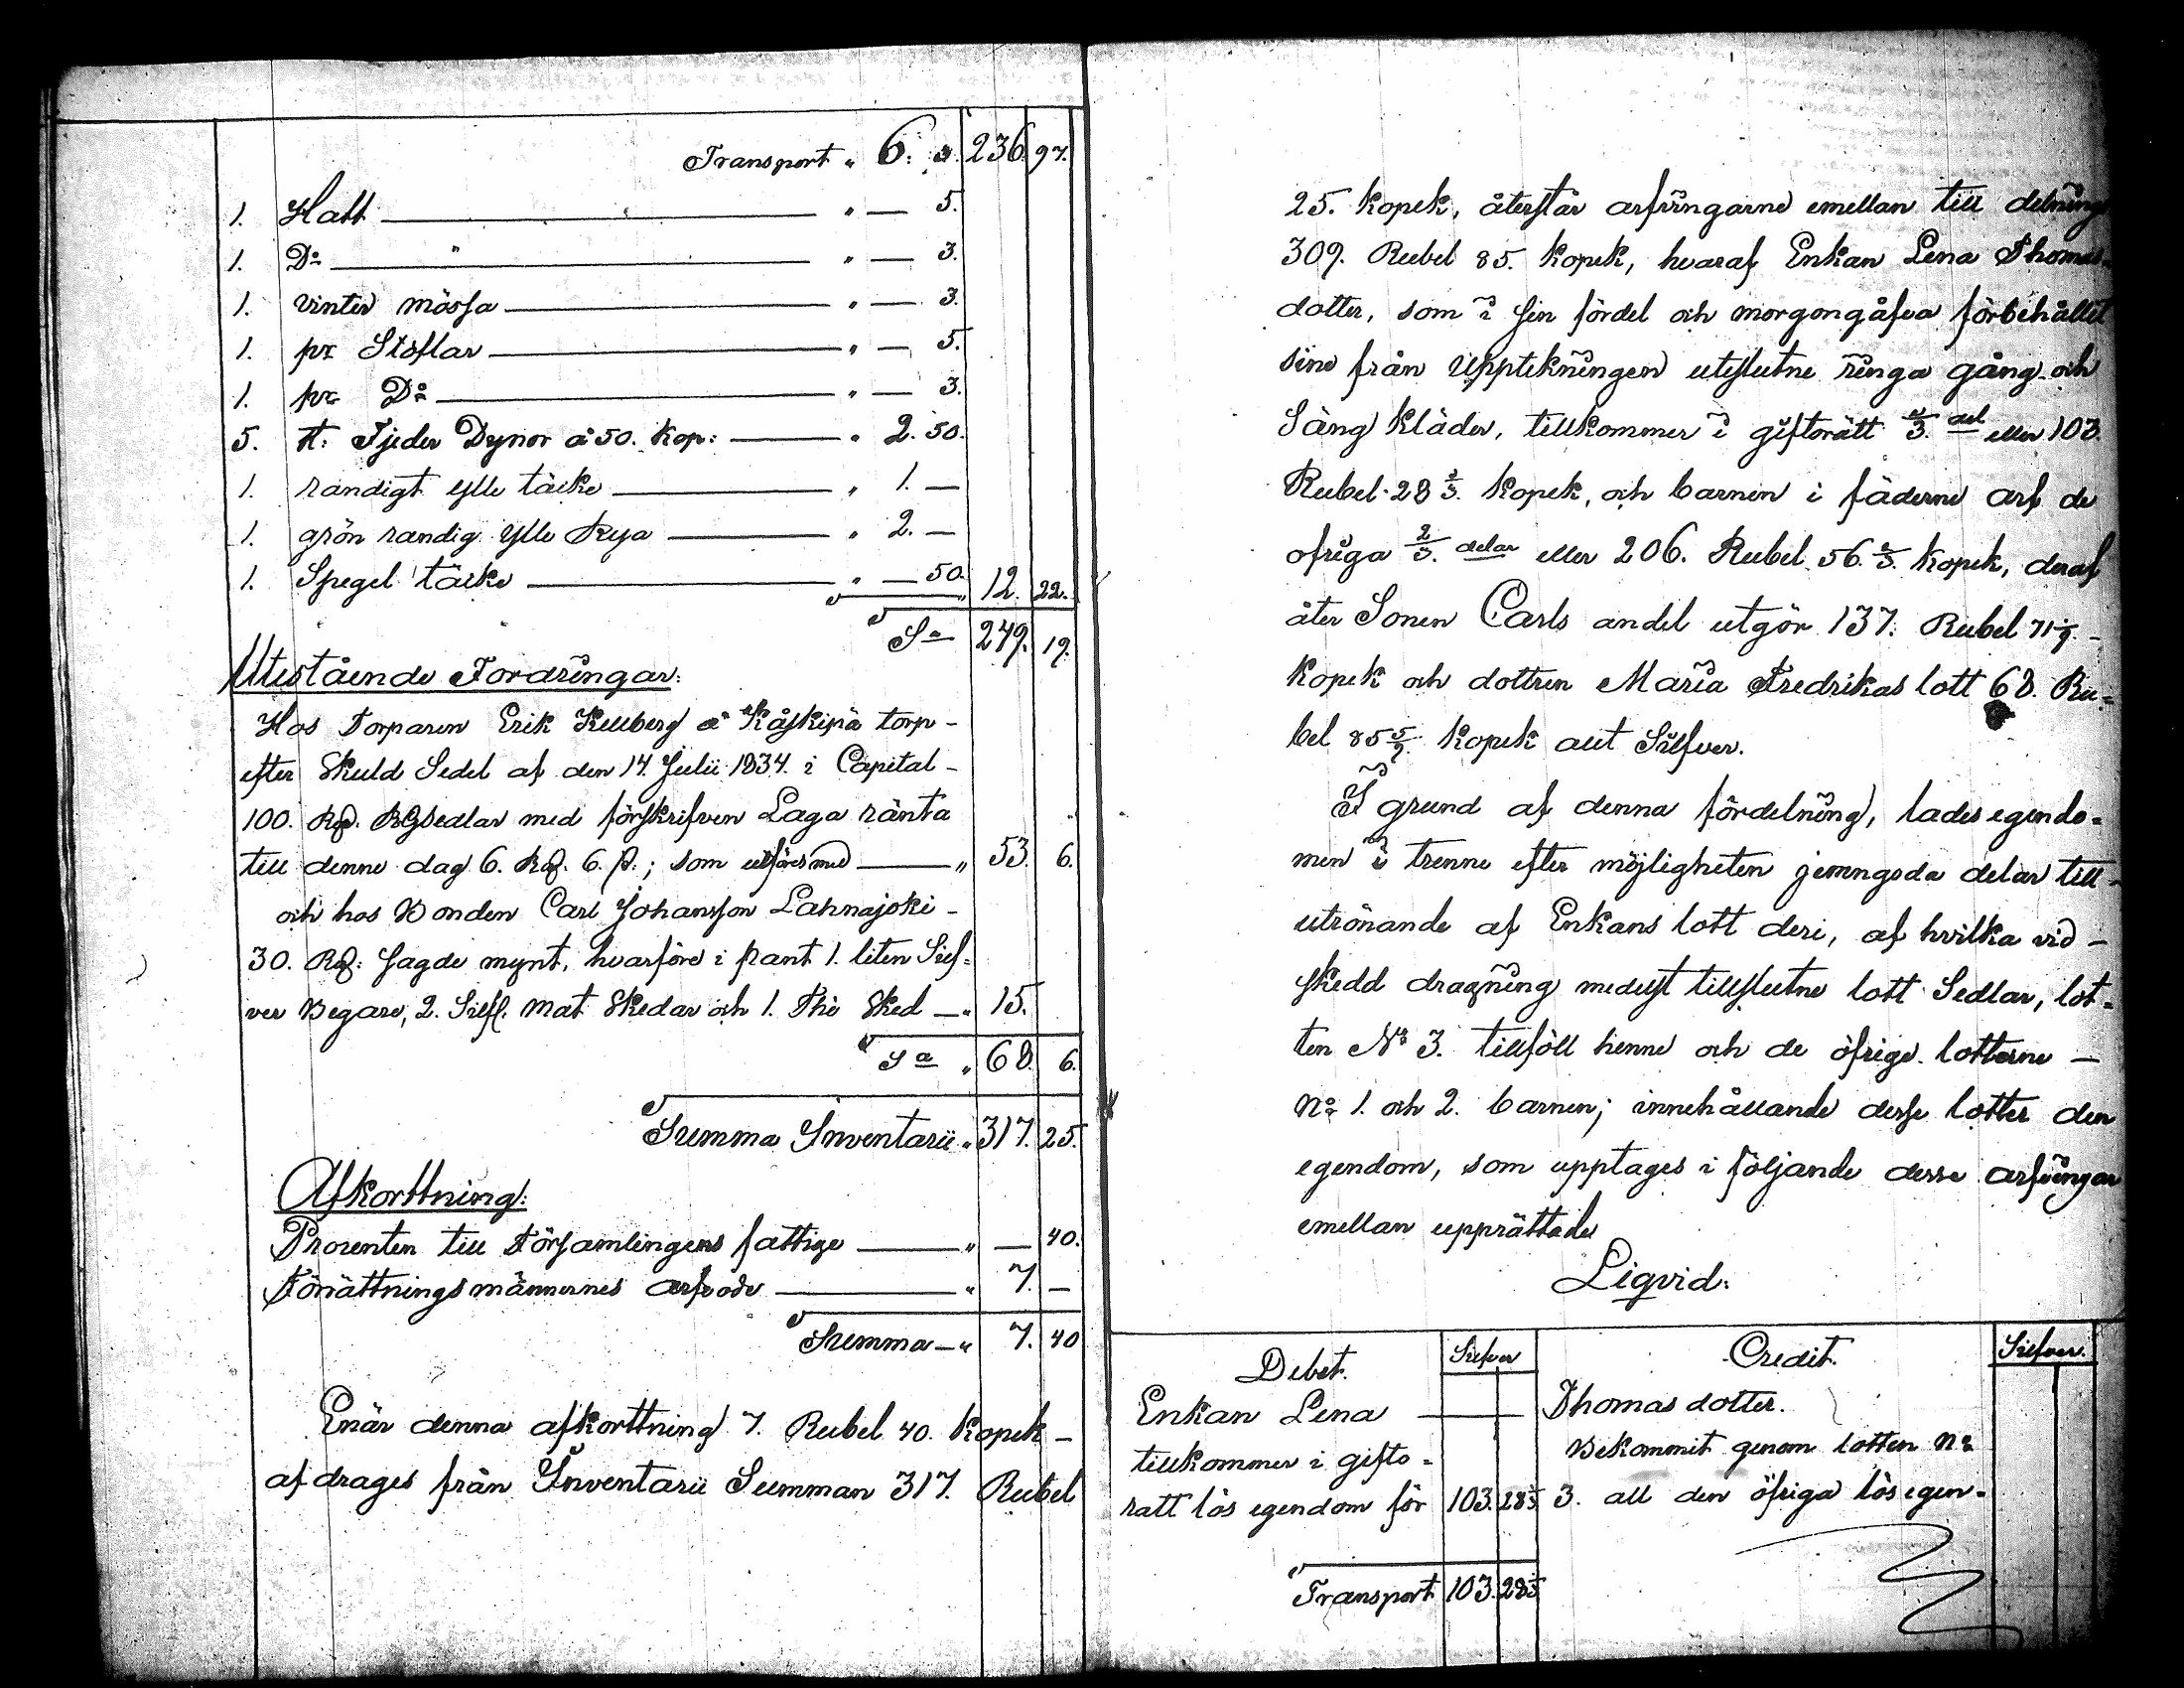 Transport „ 6. 3. 236. 97.
1. Hatt — „ — 5.
1. Do „ — „ — 3.
1. vinter mössa — „ — 3.
1. pr Stöflar — „ — 5.
1. pr Do — „ — 3.
5. st: Fjeder Dynor à 50. Kop: — „ 2. 50.
1. randigt ylle täcke — „ 1. —
1. grön randig ylle Rya — „ 2. —
1. Spegel täcke — „ — 50. 12. 22.
Sa 249. 19.
Utestående Fordringar:
Hos Torparen Erik Kullberg å Kåskipä torp –
efter Skuld Sedel af den 14. Julii 1834. i Capital –
100. Rd. RGSedlar med förskrifven Laga ränta
till denne dag 6. Rd. 6. s.; som utföres med — „ 53. 6.
och hos Bonden Carl Johansson Lahnajoki –
30. Rd: sagde mynt, hvarföre i pant 1. liten Sil=
ver Begare, 2. Silf. mat Skedar och 1. The Sked — „ 15.
Sa „ 68. 6.
Summa Inventarii „ 317. 25.
Afkorttning:
Prosenten till Församlingens fattige — „ — 40.
Förrättningsmännernes arfvode — „ 7. —
Summa — „ 7. 40
Enär denna afkorttning 7. Rubel 40. Kopek –
afdrages från Inventarii Summan 317. Rubel
25. Kopek, återstår arfvingarne emellan till delning
309. Rubel 85. kopek, hvaraf Enkan Lena Thomas=
dotter, som i sin fördel och morgongåfva förbehållit
sine från Upptekningen uteslutne ringa gång- och
Säng kläder, tillkommer i giftorätt 1/3. del eller 103.
Rubel 28 1/3. Kopek, och barnen i fäderne arf de
öfriga 2/3. delar eller 206. Rubel 56. 2/3. Kopek, deraf
åter Sonen Carls andel utgör 137. Rubel 71 1/9. –
Kopek och dottren Maria Fredrikas lott 68. Ru=
bel 85 5/9. Kopek allt Silfver.
I grund af denna fördelning, lades egendo=
men i trenne efter möjligheten jemngoda delar till –
utrönande af Enkans lott deri, af hvilka vid –
skedd dragning medelst tillslutne lott Sedlar, lot=
ten No 3. tillföll henne och de öfrige lotterne —
No 1. och 2. barnen; innehållande desse lotter den
egendom, som upptages i följande desse arfvingar
emellan upprättade
Liqvid:
Debet. Silfver Credit. Silfver.
Enkan Lena — Thomas dotter.
tillkommer i gifto= Bekommit genom lotten No
ratt lös egendom för 103. 28 1/3 3. all den öfriga lös egen=
Transport 103. 28 1/3